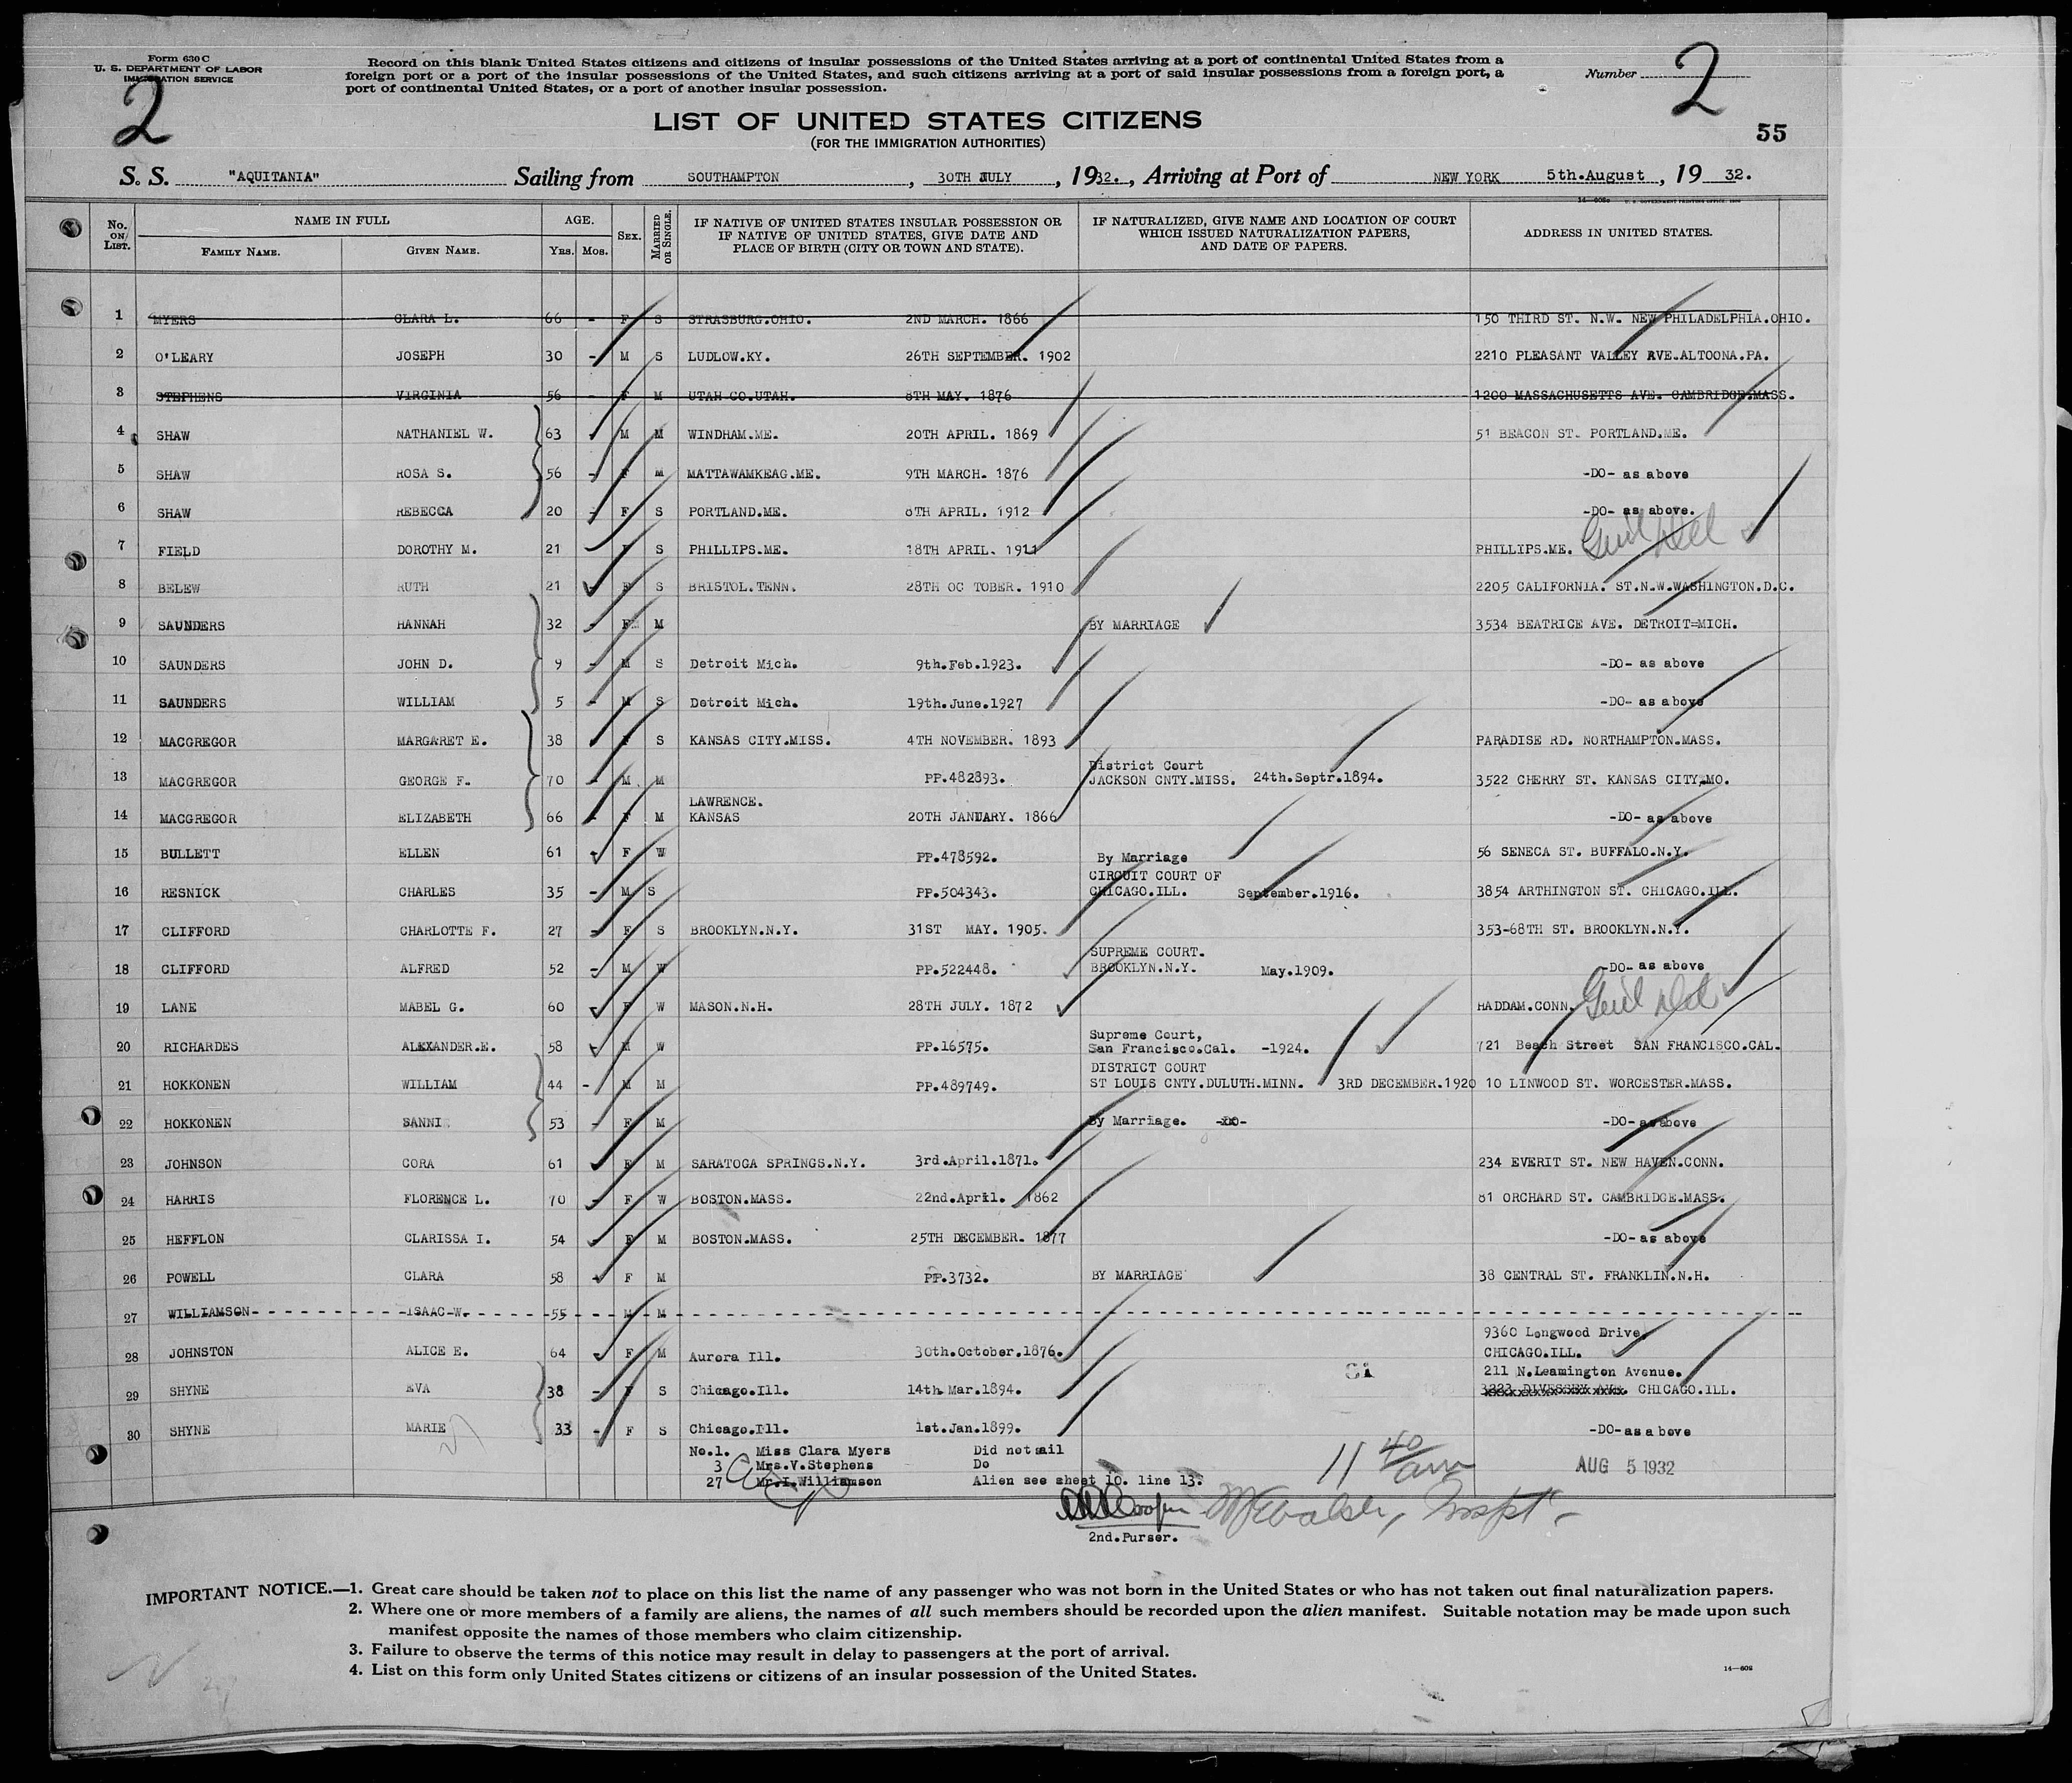 Form 630 C
U. S. DEPARTMENT OF LABOR
IMMIGRATION SERVICE
2
Record on this blank United States citizens and citizens of insular possessions of the United States arriving at a port of continental United States from a
foreign port or a port of the insular possessions of the United States, and such citizens arriving at a port of said insular possessions from a foreign port, a
port of continental United States, or a port of another insular possession.
Number 2
LIST OF UNITED STATES CITIZENS
(FOR THE IMMIGRATION AUTHORITIES)
55
S. S. "AQUITANIA" Sailing from SOUTHAMPTON, 30TH JULY, 1932., Arriving at Port of NEW YORK 5th.August, 1932.
No. ON LIST. NAME IN FULL FAMILY NAME. GIVEN NAME. AGE. YRS. MOS. SEX. MARRIED OR SINGLE. IF NATIVE OF UNITED STATES INSULAR POSSESSION OR IF NATIVE OF UNITED STATES, GIVE DATE AND PLACE OF BIRTH (CITY OR TOWN AND STATE). IF NATURALIZED, GIVE NAME AND LOCATION OF COURT WHICH ISSUED NATURALIZATION PAPERS, AND DATE OF PAPERS. ADDRESS IN UNITED STATES.
1 MYERS CLARA L. 66 - F S STRASBURG.OHIO. 2ND MARCH. 1866 150 THIRD ST. N.W. NEW PHILADELPHIA.OHIO.
2 O'LEARY JOSEPH 30 - M S LUDLOW.KY. 26TH SEPTEMBER. 1902 2210 PLEASANT VALLEY AVE.ALTOONA.PA.
3 STEPHENS VIRGINIA 56 - F M UTAH CO.UTAH. 8TH MAY. 1876 1200 MASSACHUSETTS AVE. CAMBRIDGE.MASS.
4 SHAW NATHANIEL W. 63 - M M WINDHAM.ME. 20TH APRIL. 1869 51 BEACON ST. PORTLAND.ME.
5 SHAW ROSA S. 56 - F M MATTAWAMKEAG.ME. 9TH MARCH. 1876 -DO- as above
6 SHAW REBECCA 20 - F S PORTLAND.ME. 8TH APRIL. 1912 -DO- as above.
7 FIELD DOROTHY M. 21 - F S PHILLIPS.ME. 18TH APRIL. 1911 PHILLIPS.ME.
8 BELEW RUTH 21 - F S BRISTOL.TENN. 28TH OC TOBER. 1910 2205 CALIFORNIA. ST.N.W.WASHINGTON.D.C.
9 SAUNDERS HANNAH 32 - F M BY MARRIAGE 3534 BEATRICE AVE. DETROIT=MICH.
10 SAUNDERS JOHN D. 9 - M S Detroit Mich. 9th.Feb.1923. -DO- as above
11 SAUNDERS WILLIAM 5 - M S Detroit Mich. 19th.June.1927 -DO- as above
12 MACGREGOR MARGARET E. 38 - F S KANSAS CITY.MISS. 4TH NOVEMBER. 1893 PARADISE RD. NORTHAMPTON.MASS.
District Court
13 MACGREGOR GEORGE F. 70 - M M PP.482893. JACKSON CNTY.MISS. 24th.Septr.1894. 3522 CHERRY ST. KANSAS CITY.MO.
LAWRENCE.
14 MACGREGOR ELIZABETH 66 - F M KANSAS 20TH JANUARY. 1866 -DO- as above
15 BULLETT ELLEN 61 - F W PP.478592. By Marriage 56 SENECA ST. BUFFALO.N.Y.
CIRCUIT COURT OF
16 RESNICK CHARLES 35 - M S PP.504343. CHICAGO.ILL. September.1916. 3854 ARTHINGTON ST. CHICAGO.ILL.
17 CLIFFORD CHARLOTTE F. 27 - F S BROOKLYN.N.Y. 31ST MAY. 1905. 353-68TH ST. BROOKLYN.N.Y.
SUPREME COURT.
18 CLIFFORD ALFRED 52 - M W PP.522448. BROOKLYN.N.Y. May.1909. -DO- as above
19 LANE MABEL G. 60 - F W MASON.N.H. 28TH JULY. 1872 HADDAM.CONN.
Supreme Court,
20 RICHARDES ALEXANDER.E. 58 - M W PP.16575. San Francisco.Cal. -1924. 721 Beach Street SAN FRANCISCO.CAL.
DISTRICT COURT
21 HOKKONEN WILLIAM 44 - M M PP.489749. ST LOUIS CNTY.DULUTH.MINN. 3RD DECEMBER.1920 10 LINWOOD ST. WORCESTER.MASS.
22 HOKKONEN SANNI 53 - F M By Marriage. -DO- -DO- as above
23 JOHNSON CORA 61 - F M SARATOGA SPRINGS.N.Y. 3rd.April.1871. 234 EVERIT ST. NEW HAVEN.CONN.
24 HARRIS FLORENCE L. 70 - F W BOSTON.MASS. 22nd.April. 1862 81 ORCHARD ST. CAMBRIDGE.MASS.
25 HEFFLON CLARISSA I. 54 - F M BOSTON.MASS. 25TH DECEMBER. 1877 -DO- as above
26 POWELL CLARA 58 - F M PP.3732. BY MARRIAGE 38 CENTRAL ST. FRANKLIN.N.H.
27 WILLIAMSON ISAAC W. 55 - M M
9360 Longwood Drive,
28 JOHNSTON ALICE E. 64 - F M Aurora Ill. 30th.October.1876. CHICAGO.ILL.
211 N.Leamington Avenue.
29 SHYNE EVA 38 - F S Chicago.Ill. 14th Mar.1894. CHICAGO.ILL.
30 SHYNE MARIE 33 - F S Chicago.Ill. 1st.Jan.1899. -DO- as above
No.1. Miss Clara Myers Did not sail
3 Mrs.V.Stephens Do
27 Mr.I.Williamson Alien see sheet 10. line 13.
11 40 am
AUG 5 1932
2nd.Purser.
IMPORTANT NOTICE.—1. Great care should be taken not to place on this list the name of any passenger who was not born in the United States or who has not taken out final naturalization papers.
2. Where one or more members of a family are aliens, the names of all such members should be recorded upon the alien manifest. Suitable notation may be made upon such
manifest opposite the names of those members who claim citizenship.
3. Failure to observe the terms of this notice may result in delay to passengers at the port of arrival.
4. List on this form only United States citizens or citizens of an insular possession of the United States.
14—608